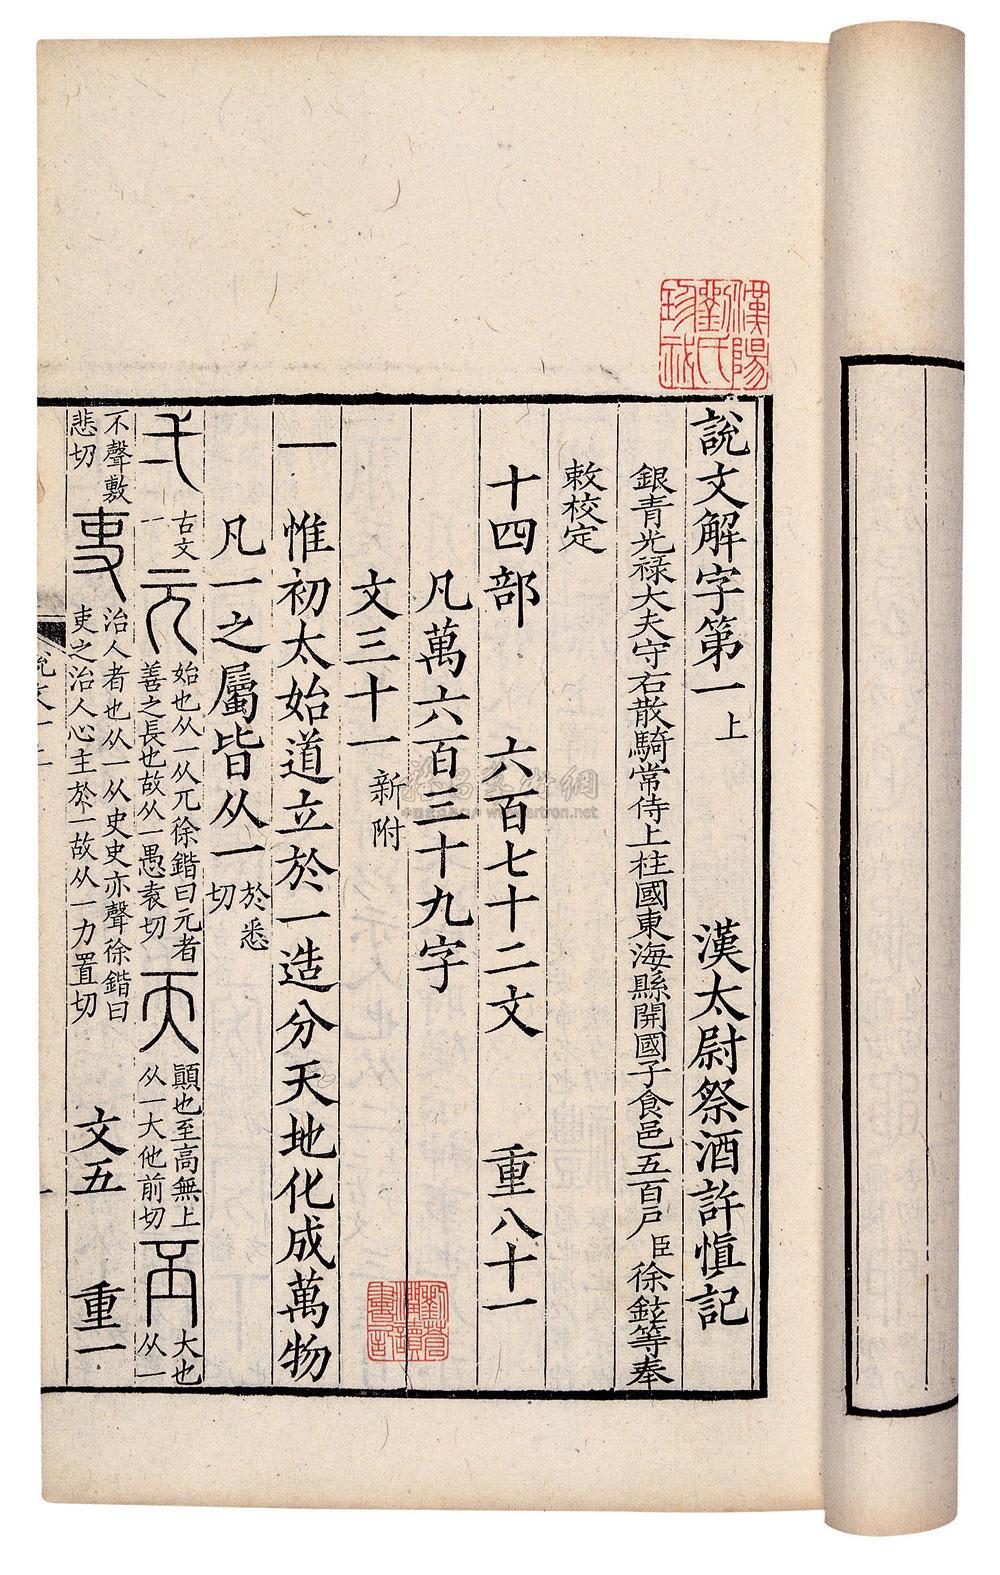 漢陽劉氏珍祕
說文解字第一上 漢太尉祭酒許慎記
銀青光祿大夫守右散騎常侍上柱國東海縣開國子食邑五百戶臣徐鉉等奉
敕校定
十四部 六百七十二文 重八十一
凡萬六百三十九字
文三十一 新附
一 惟初太始道立於一造分天地化成萬物
凡一之屬皆从一 於悉切
弌 古文一 元 始也从一从兀徐鍇曰元者善之長也故从一愚袁切 天 顚也至高無上从一大他前切 丕 大也从一
不聲敷悲切 吏 治人者也从一从史史亦聲徐鍇曰吏之治人心主於一故从一力置切 文五 重一